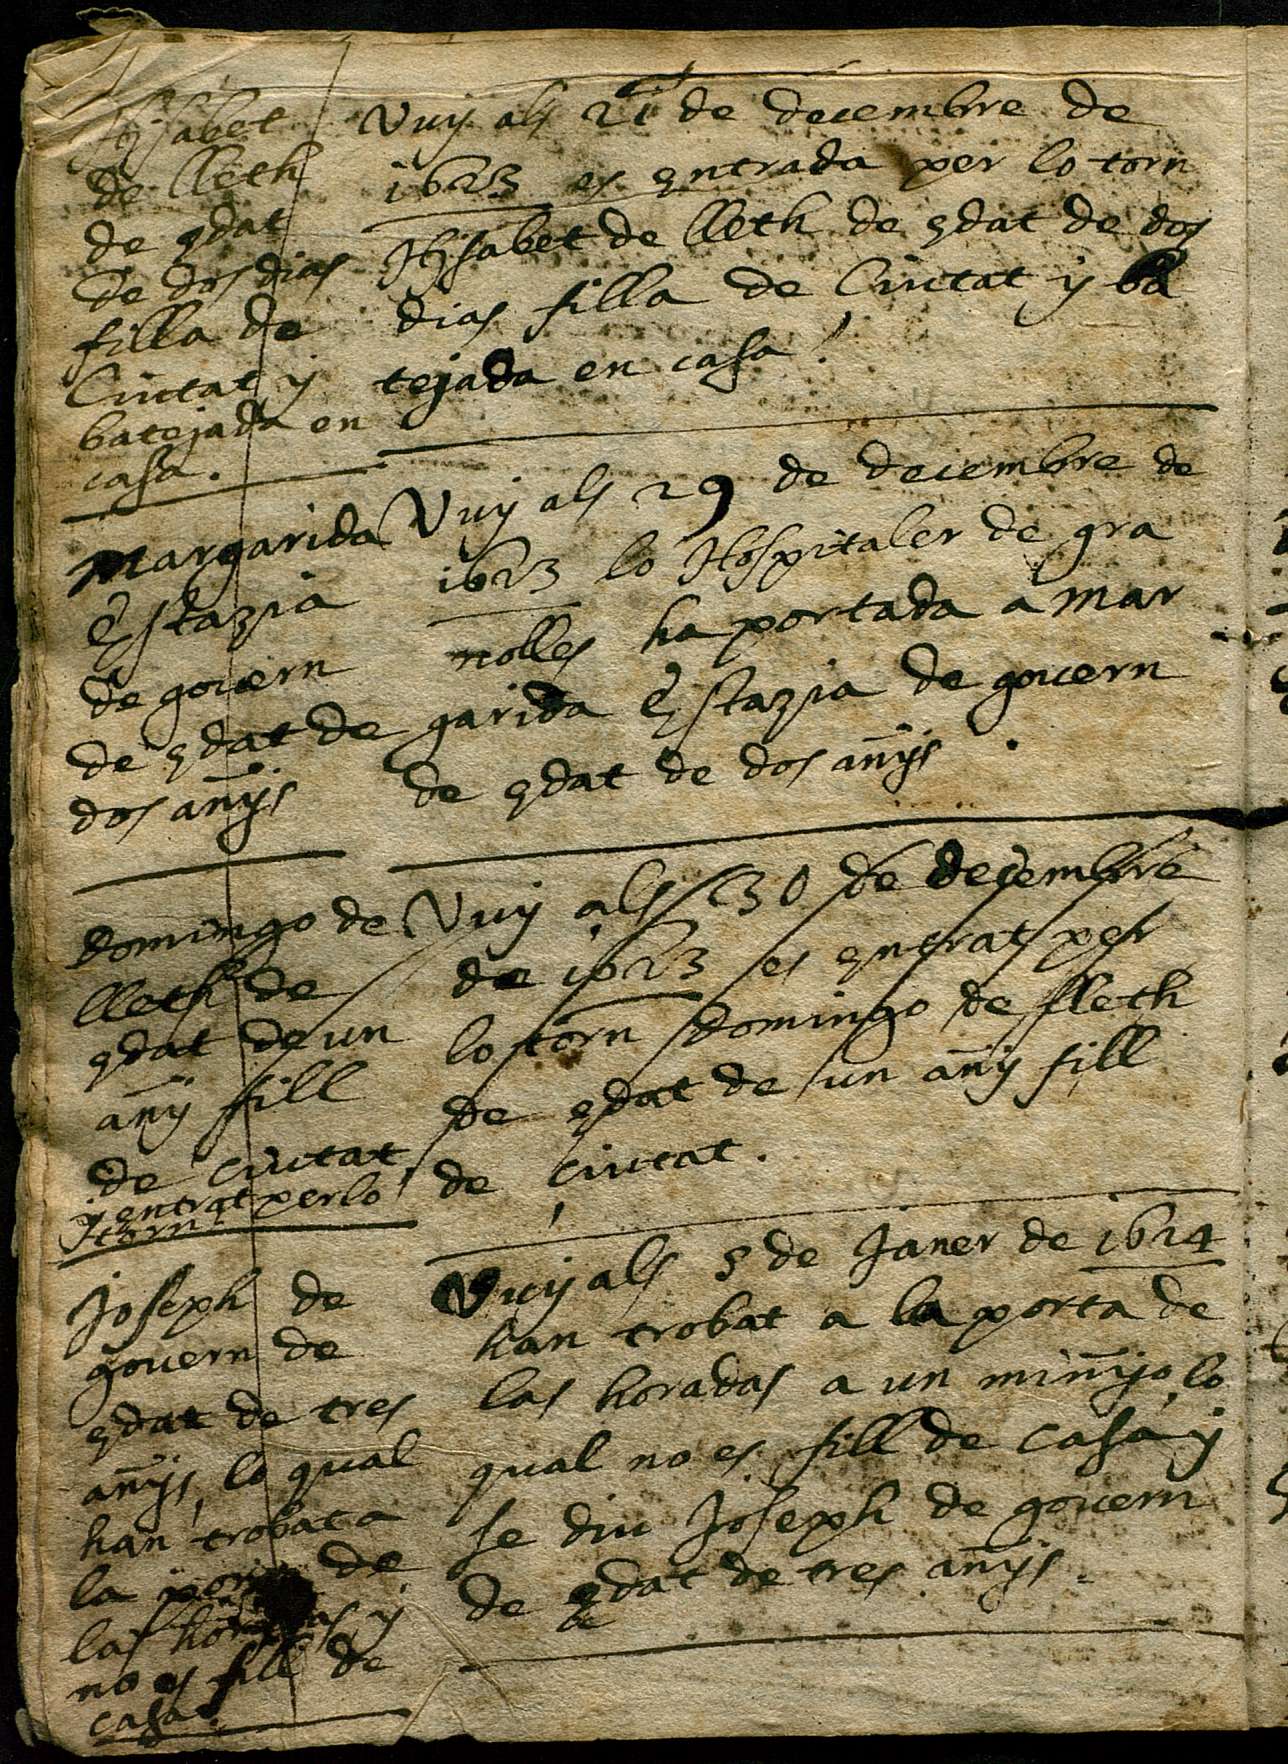 Hysabet
de lleth
de edat
de dos dias
filla de
Ciutat y
batejada en
casa.
Vuy als 21 de decembre de
1623 es entrada per lo torn
Hysabet de lleth de edat de dos
dias filla de Ciutat y ba
tejada en casa.
Margarida
Estazia
de govern
de edat de
dos añys
Vuy als 29 de decembre de
1623 lo Hospitaler de gra
nolles ha portada a Mar
garida Estazia de govern
de edat de dos añys.
Domingo de
lleth de
edat de un
añy fill
de Ciutat
y entrat per lo
torn
Vuy als 30 de decembre
de 1623 es entrat per
lo torn Domingo de lleth
de edat de un añy fill
de Ciutat.
Joseph de
govern de
edat de tres
añys, lo qual
han trobat a
la porta de
las horadas y
no es fill de
casa.
Vuy als 8 de Janer de 1624
han trobat a la porta de
las horadas a un miñyo, lo
qual no es fill de casa y
se diu Joseph de govern
de edat de tres añys.